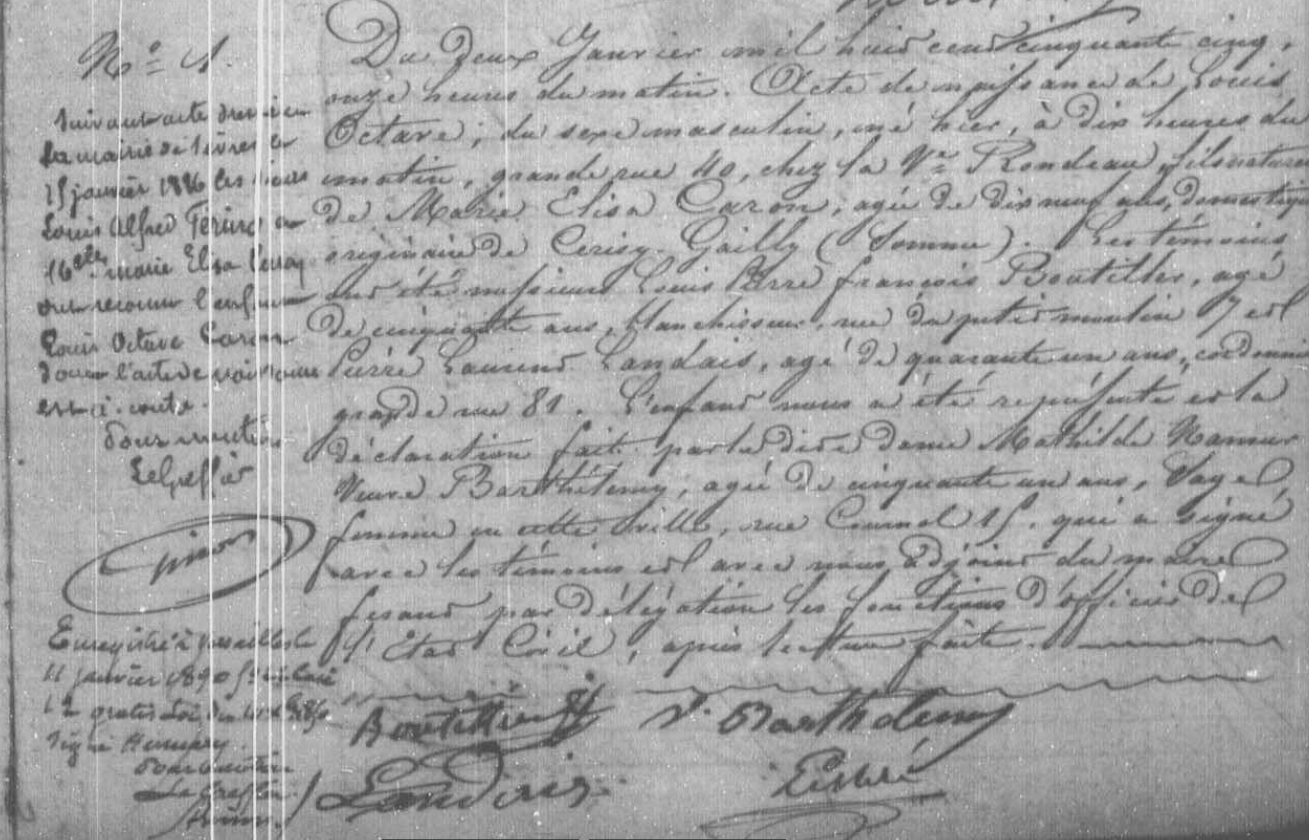 N.° 1.
Suivant acte dressé en
la mairie de Sèvres le
15 janvier 1886 les sieurs
Louis Alfred
Marie Elisa Caron
ont reconnu l'enfant
Louis Octave Caron
dont l'acte de naissance
est ci-contre.
Pour mention
Le Greffier
Du deux Janvier mil huit cent cinquante cinq,
onze heures du matin. Acte de naissance de Louis
Octave, du sexe masculin, né hier, à dix heures du
matin, grande rue 40, chez la Ve. Rondeau, fils naturel
de Marie Elisa Caron, agée de dix neuf ans, domestique
originaire de Cerisy-Gailly (Somme). Les témoins
ont été messieurs Louis Pierre françois Boutillier, agé
de cinquante ans, blanchisseur, rue du petit moulin 7 et
Pierre Laurent Landais, agé de quarante un ans, cordonnier
grande rue 81. L'enfant nous a été représenté et la
déclaration faite par la dite dame Mathilde Namur
Veuve Barthélemy, agée de cinquante un ans, Sage
femme en cette ville, rue 15. qui a signé
avec les témoins et avec nous adjoint du maire
fesant par délégation les fonctions d'officier de
l'Etat Civil, après lecture faite.
Enregistré à Versailles le
11 janvier 1890
Signé
Pour mention
Le Greffier
Boutillier Ve. Barthelemy
Landais